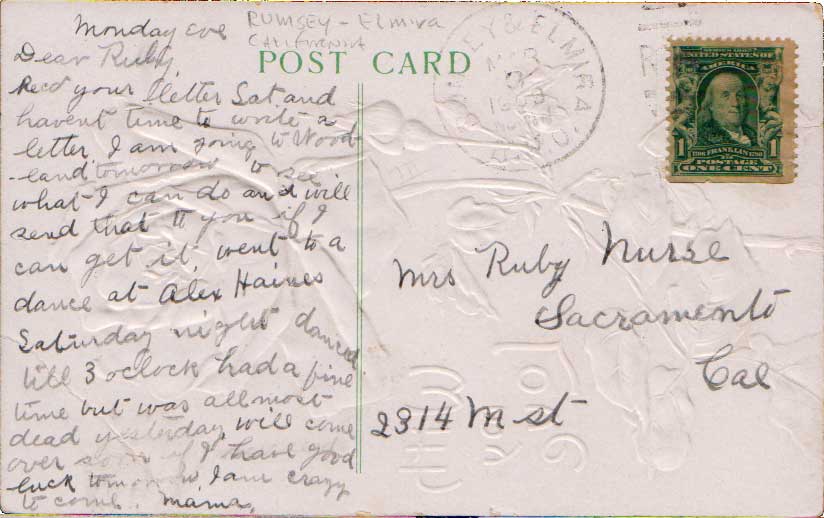 Monday Eve
RUMSEY - ELMIRA
CALIFORNIA
POST CARD
Dear Ruby,
Recd your letter Sat. and
havent time to write a
letter, I am going to Wood-
-land tomorrow to see
what I can do and will
send that to you if I
can get it, went to a
dance at Alex Haines
Saturday night danced
till 3 oclock had a fine
time but was allmost
dead yesterday, will come
over soon if I have good
luck tomorrow, I am crazy
to come. Mama,
& ELMIRA
SERIES 1902
UNITED STATES OF
AMERICA
1706 FRANKLIN 1790
1 POSTAGE 1
ONE CENT
Mrs Ruby Nurse
Sacramento
Cal
2314 M st